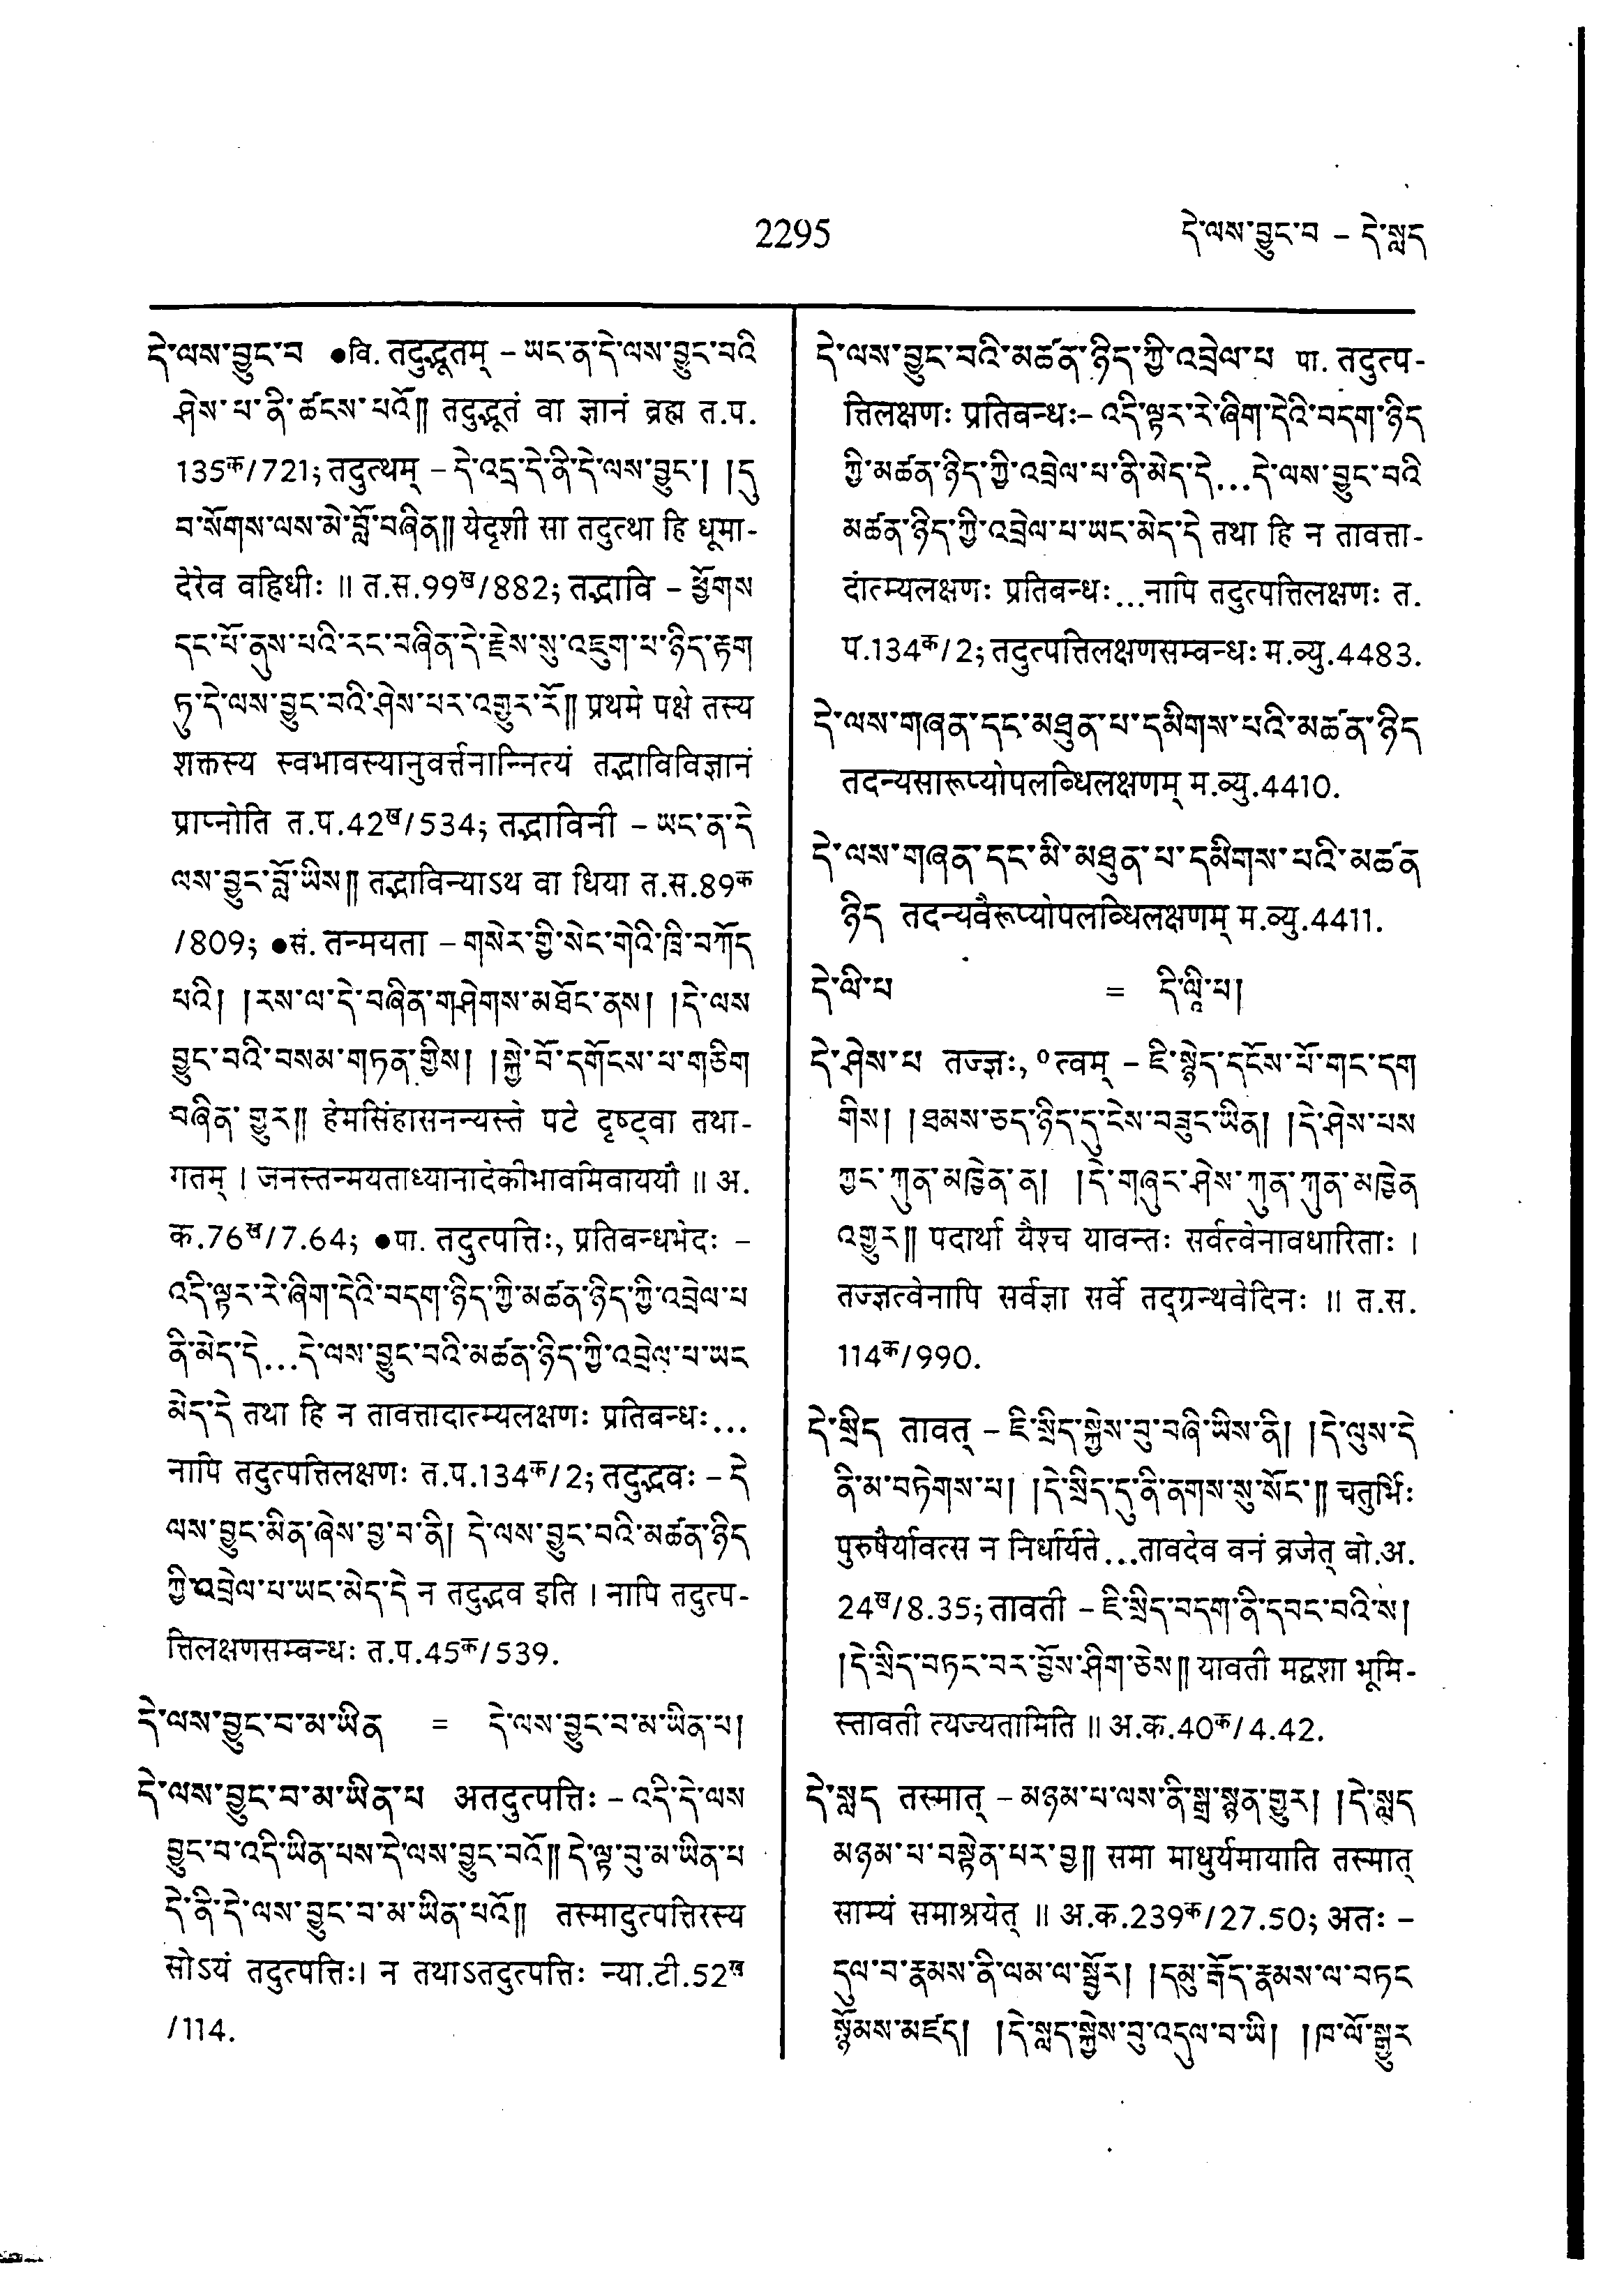 2295
དེ་ལས་བྱུང་བ – དེ་སླད
དེ་ལས་བྱུང་བ ●वि. तदुद्भूतम् – ཡང་ན་དེ་ལས་བྱུང་བའི
ཤེས་པ་ནི་ཚངས་པའོ༎ तदुद्भूतं वा ज्ञानं ब्रह्म त.प.
135क/721; तदुत्थम् – དེ་འདྲ་དེ་ནི་དེ་ལས་བྱུང་། །དུ
བ་སོགས་ལས་མེ་བློ་བཞིན༎ येदृशी सा तदुत्था हि धूमा-
देरेव वह्निधीः ॥ त.स.99ख/882; तद्भावि – ཕྱོགས
དང་པོ་ནུས་པའི་རང་བཞིན་དེ་རྗེས་སུ་འཇུག་པ་ཉིད་རྟག
ཏུ་དེ་ལས་བྱུང་བའི་ཤེས་པར་འགྱུར་རོ༎ प्रथमे पक्षे तस्य
शक्तस्य स्वभावस्यानुवर्त्तनान्नित्यं तद्भाविविज्ञानं
प्राप्नोति त.प.42ख/534; तद्भाविनी – ཡང་ན་དེ
ལས་བྱུང་བློ་ཡིས༎ तद्भाविन्याऽथ वा धिया त.स.89क
/809; ●सं. तन्मयता – གསེར་གྱི་སེང་གེའི་ཁྲི་བཀོད
པའི། །རས་ལ་དེ་བཞིན་གཤེགས་མཐོང་ནས། །དེ་ལས
བྱུང་བའི་བསམ་གཏན་གྱིས། །སྐྱེ་བོ་དགོངས་པ་གཅིག
བཞིན་གྱུར༎ हेमसिंहासनन्यस्ते पटे दृष्ट्वा तथा-
गतम् । जनस्तन्मयताध्यानादेकीभावमिवाययौ ॥ अ.
क.76ख/7.64; ●पा. तदुत्पत्तिः, प्रतिबन्धभेदः –
འདི་ལྟར་རེ་ཞིག་དེའི་བདག་ཉིད་ཀྱི་མཚན་ཉིད་ཀྱི་འབྲེལ་པ
ནི་མེད་དེ...དེ་ལས་བྱུང་བའི་མཚན་ཉིད་ཀྱི་འབྲེལ་པ་ཡང
མེད་དེ तथा हि न तावत्तादात्म्यलक्षणः प्रतिबन्धः...
नापि तदुत्पत्तिलक्षणः त.प.134क/2; तदुद्भवः – དེ
ལས་བྱུང་མིན་ཞེས་བྱ་བ་ནི། དེ་ལས་བྱུང་བའི་མཚན་ཉིད
ཀྱི་འབྲེལ་པ་ཡང་མེད་དེ न तदुद्भव इति । नापि तदुत्प-
त्तिलक्षणसम्बन्धः त.प.45क/539.
དེ་ལས་བྱུང་བ་མ་ཡིན = དེ་ལས་བྱུང་བ་མ་ཡིན་པ།
དེ་ལས་བྱུང་བ་མ་ཡིན་པ अतदुत्पत्तिः – འདི་དེ་ལས
བྱུང་བ་འདི་ཡིན་པས་དེ་ལས་བྱུང་བའོ༎ དེ་ལྟ་བུ་མ་ཡིན་པ
དེ་ནི་དེ་ལས་བྱུང་བ་མ་ཡིན་པའོ༎ तस्मादुत्पत्तिरस्य
सोऽयं तदुत्पत्तिः। न तथाऽतदुत्पत्तिः न्या.टी.52ख
/114.
དེ་ལས་བྱུང་བའི་མཚན་ཉིད་ཀྱི་འབྲེལ་པ पा. तदुत्प-
त्तिलक्षणः प्रतिबन्धः– འདི་ལྟར་རེ་ཞིག་དེའི་བདག་ཉིད
ཀྱི་མཚན་ཉིད་ཀྱི་འབྲེལ་པ་ནི་མེད་དེ...དེ་ལས་བྱུང་བའི
མཚན་ཉིད་ཀྱི་འབྲེལ་པ་ཡང་མེད་དེ तथा हि न तावत्ता-
दात्म्यलक्षणः प्रतिबन्धः...नापि तदुत्पत्तिलक्षणः त.
प.134क/2; तदुत्पत्तिलक्षणसम्बन्धः म.व्यु.4483.
དེ་ལས་གཞན་དང་མཐུན་པ་དམིགས་པའི་མཚན་ཉིད
तदन्यसारूप्योपलब्धिलक्षणम् म.व्यु.4410.
དེ་ལས་གཞན་དང་མི་མཐུན་པ་དམིགས་པའི་མཚན
ཉིད तदन्यवैरूप्योपलब्धिलक्षणम् म.व्यु.4411.
དེ་ལི་པ = དི་ལཱི་པ།
དེ་ཤེས་པ तज्ज्ञः, ०त्वम् – ཇི་སྙེད་དངོས་པོ་གང་དག
གིས། །ཐམས་ཅད་ཉིད་དུ་ངེས་བཟུང་ཡིན། །དེ་ཤེས་པས
ཀྱང་ཀུན་མཁྱེན་ན། །དེ་གཞུང་ཤེས་ཀུན་ཀུན་མཁྱེན
འགྱུར༎ पदार्था यैश्च यावन्तः सर्वत्वेनावधारिताः ।
तज्ज्ञत्वेनापि सर्वज्ञा सर्वे तद्ग्रन्थवेदिनः ॥ त.स.
114क/990.
དེ་སྲིད तावत् – ཇི་སྲིད་སྐྱེས་བུ་བཞི་ཡིས་ནི། །དེ་ལུས་དེ
ནི་མ་བཏེགས་པ། །དེ་སྲིད་དུ་ནི་ནགས་སུ་སོང་༎ चतुर्भिः
पुरुषैर्यावत्स न निर्धार्यते...तावदेव वनं व्रजेत् बो.अ.
24ख/8.35; तावती – ཇི་སྲིད་བདག་ནི་དབང་བའི་ས།
།དེ་སྲིད་བཏང་བར་བྱོས་ཤིག་ཅེས༎ यावती मद्वशा भूमि-
स्तावती त्यज्यतामिति ॥ अ.क.40क/4.42.
དེ་སླད तस्मात् – མཉམ་པ་ལས་ནི་སྒྲ་སྙན་གྱུར། །དེ་སླད
མཉམ་པ་བསྟེན་པར་བྱ༎ समा माधुर्यमायाति तस्मात्
साम्यं समाश्रयेत् ॥ अ.क.239क/27.50; अतः –
དུལ་བ་རྣམས་ནི་ལམ་ལ་སྦྱོར། །དམུ་རྒོད་རྣམས་ལ་བཏང
སྙོམས་མཛད། །དེ་སླད་སྐྱེས་བུ་འདུལ་བ་ཡི། །ཁ་ལོ་སྒྱུར